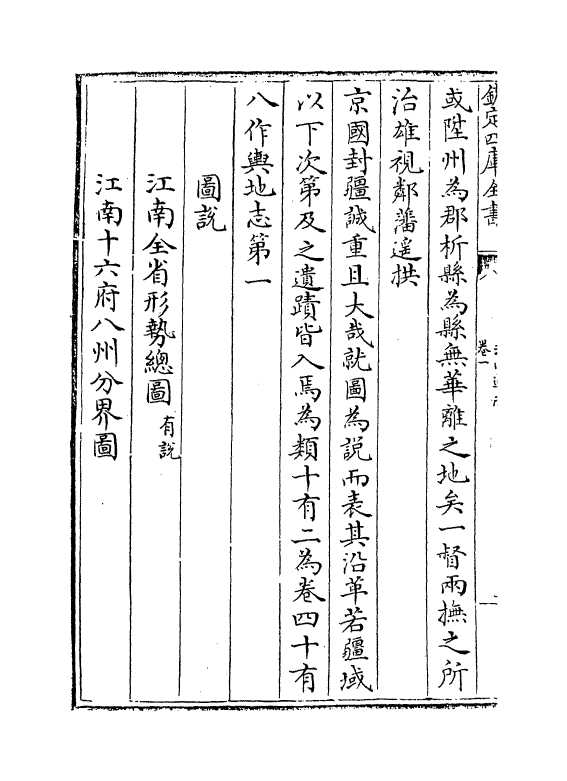 欽定四庫全書
卷一
或陞州為郡析縣為縣無華離之地矣一督兩撫之所
治雄視鄰藩遥拱
京國封疆誠重且大哉就圖為説而表其沿革若疆域
以下次第及之遺蹟皆入焉為類十有二為卷四十有
八作輿地志第一
圖説
江南全省形勢總圖 有説
江南十六府八州分界圖